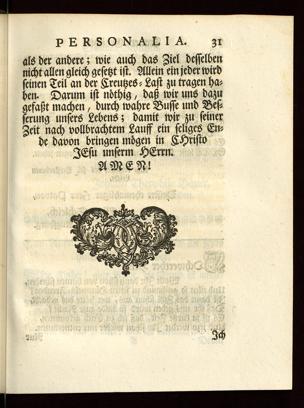 PERSONALIA. 31
als der andere; wie auch das Ziel desselben
nicht allen gleich gesetzt ist. Allein ein jeder wird
seinen Teil an der Creutzes-Last zu tragen ha-
ben. Darum ist nöthig, daß wir uns dazu
gefaßt machen, durch wahre Busse und Bes-
serung unsers Lebens; damit wir zu seiner
Zeit nach vollbrachtem Lauff ein seliges En-
de davon bringen mögen in CHristo
JEsu unserm HErrn.
AMEN!
Jch